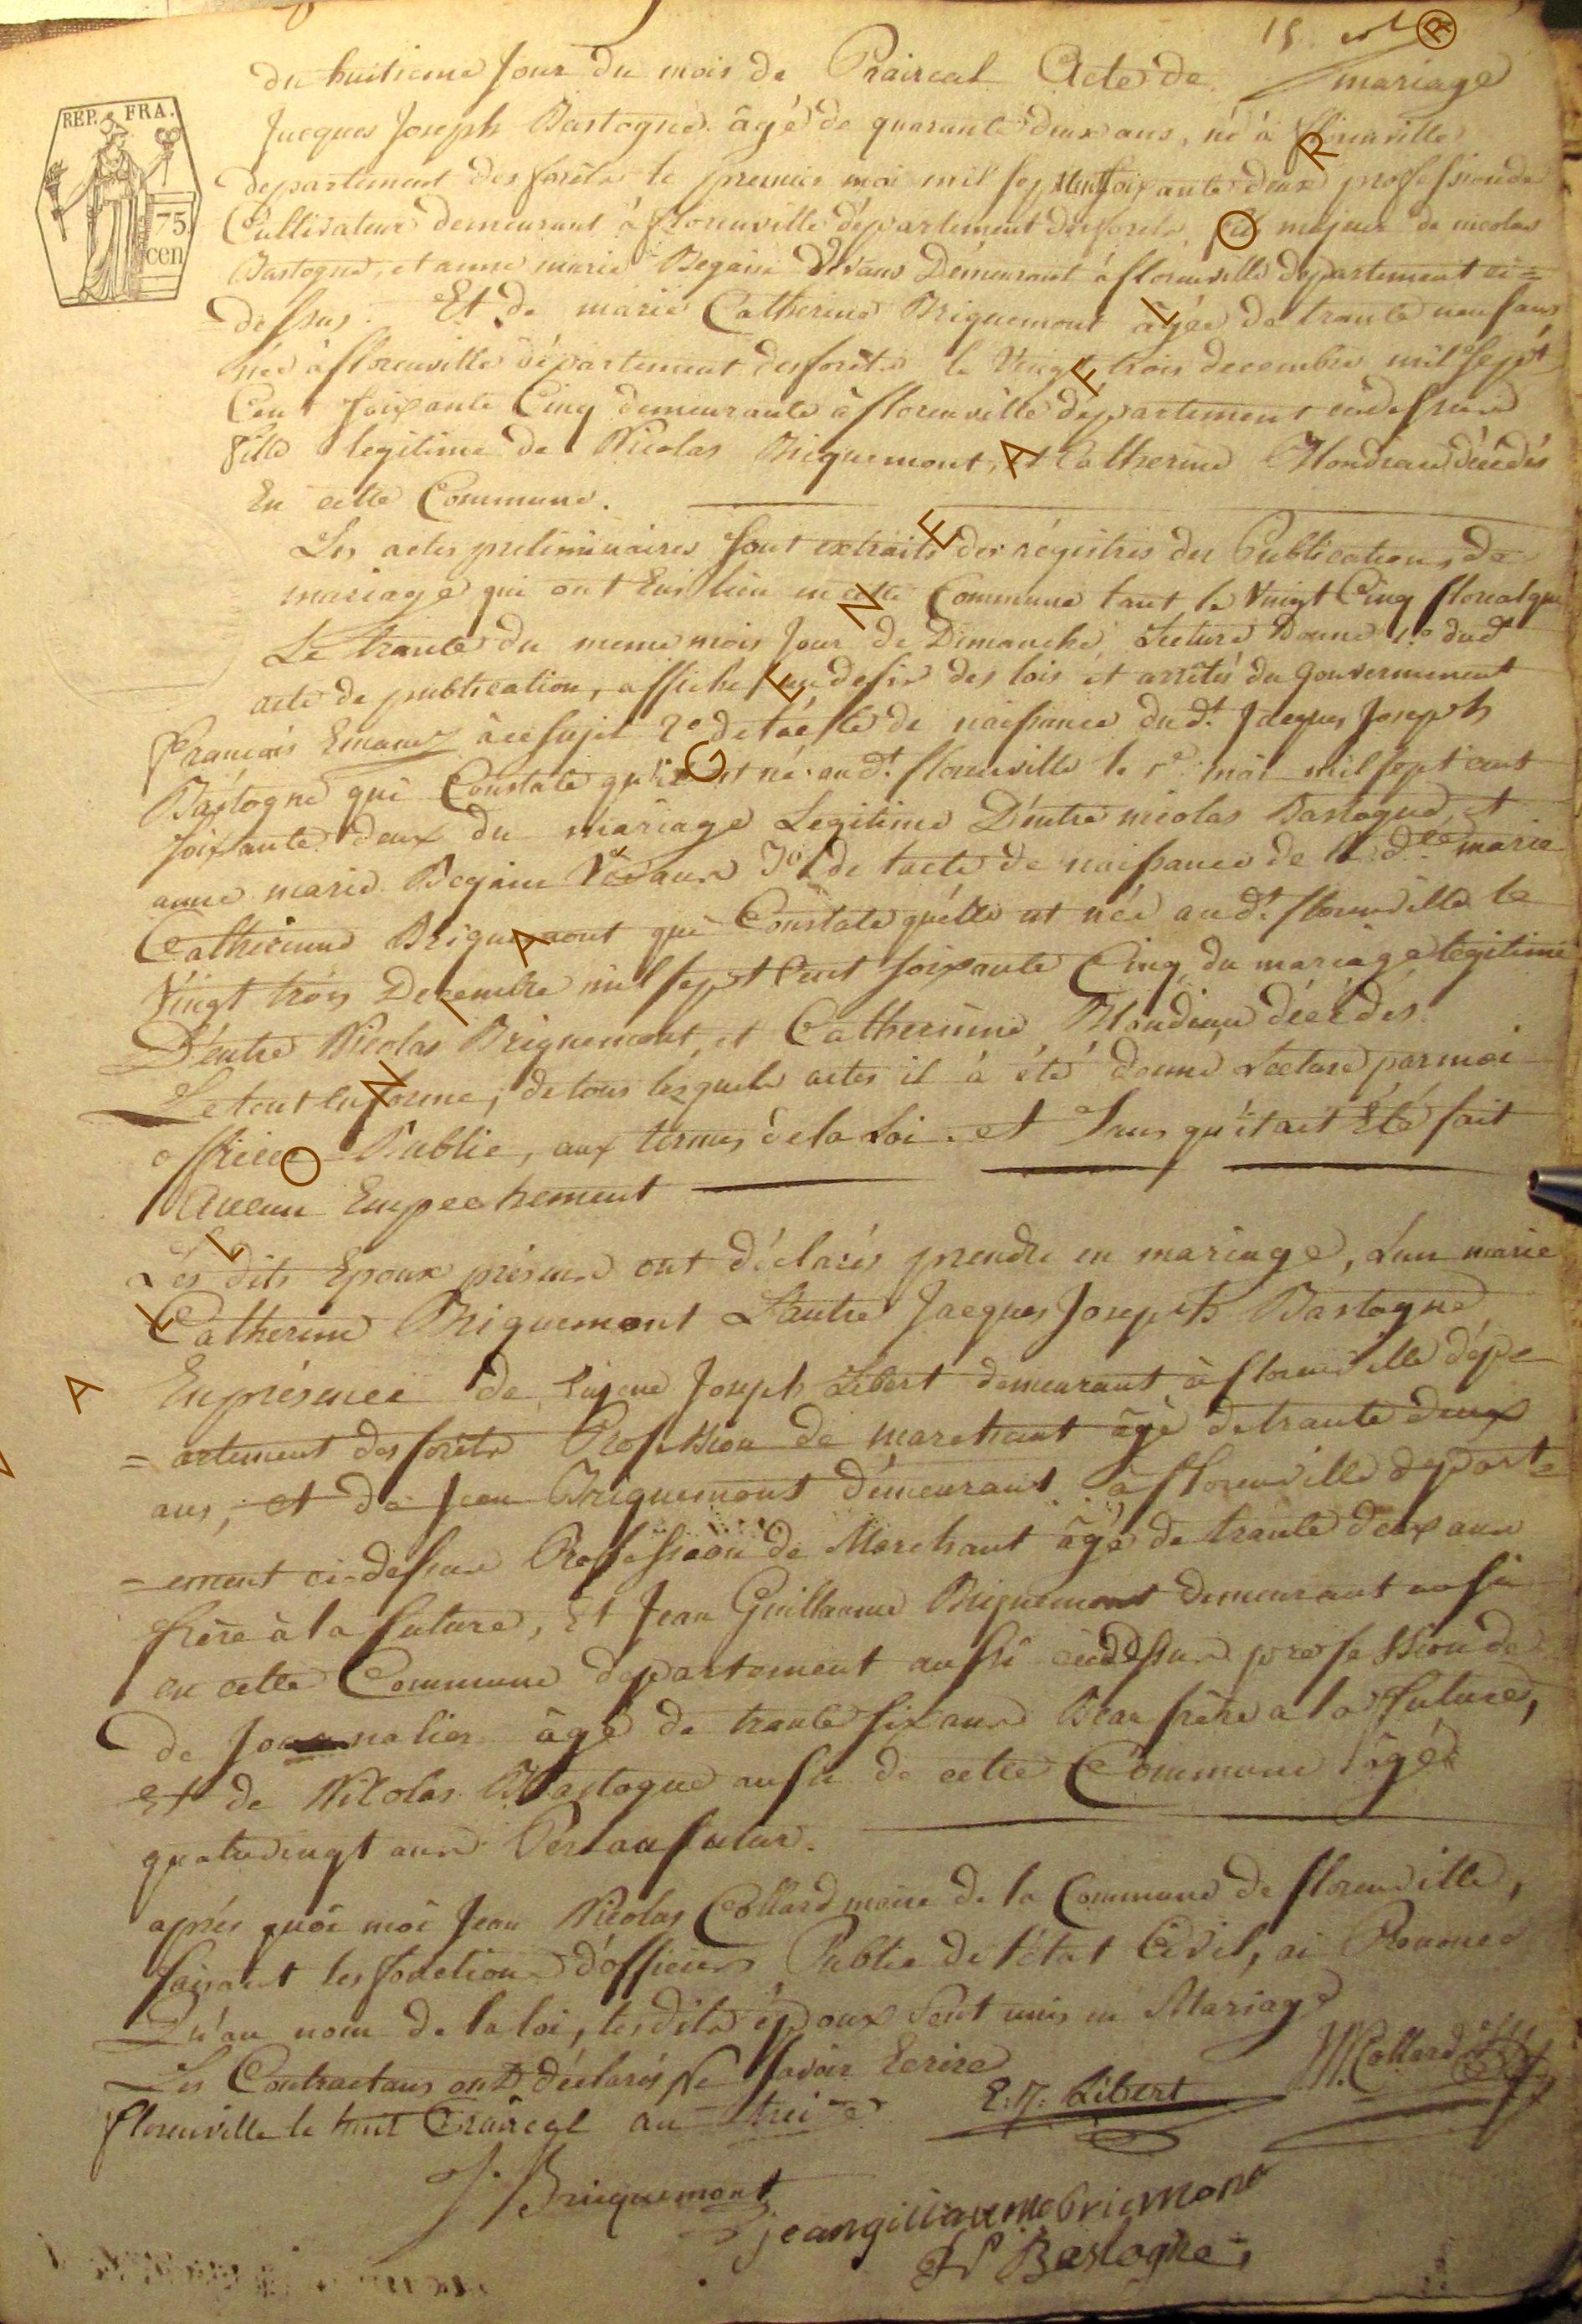 15
REP. FRA.
75
cen
du huitieme Jour du mois de Praireal Acte de mariage
Jacques Joseph Bastogne âgé de quarante deux ans, né à florenville
departement des forêts le premier mai mil sept cent soixante deux profession de
Cultivateur demeurant à florenville département des forets, fils majeur de nicolas
Bastogne, et anne marie Begaine Devaux Demeurant à florenville departement ci=
=dessus. Et de marie Catherine Briquemont âgée de trante neuf ans
née à florenville département des forêts le Vingt trois decembre mil sept
Cent soixante Cinq demeurante à florenville departement ci dessus
fille legitime de Nicolas Briquemont, et Catherine Hondieau décédés
En cette Commune.
Les actes preliminaires sont extraits des régistres des Publications de
mariage qui ont Eus lieu en cette Commune tant le Vingt Cinq floreal que
Le trante du meme mois Jour de Dimanche Lecture donne 1o dud
acte de publication, affiche au desir des lois et arrêtés du Gouvernement
francais Emanez à ce sujet 2o de l'acte de naissance du dt Jacques Joseph
Bastogne qui Constate qu'il est né au dt florenville le 1er mai mil sept cent
soixante deux du mariage Legitime D'entre nicolas Bastogne, et
anne marie Begaine Devaux 3o de l'acte de naissance de la dte marie
Catherinne Briquemont qui Constate quélle est née au dt florenville le
Vingt trois Decembre mil sept Cent soixante Cinq du mariage legitime
D'éntre Nicolas Briquemont, et Catherinne Hondieau décédés.
Le tout en forme; de tous lesquels actes il à été donné Lecture par moi
officier Public, aux termes de la Loi. et Sans qu'il ait Eté fait
Aucun Empechement
Les dits Epoux présens ont déclarés prendre en mariage, L'un marie
Catherine Briquemont L'autre Jacques Joseph Bastogne
En présence de Eugene Joseph Libert demeurant à florenville dépe
=artement des forêts Profession de marchant âgé de trante deux
ans, et de Jean Briquemont démeurant à florenville depart=
=ement ci-dessus Profession de Marchant âgé de trante deux ans
frère à la future, Et Jean Guillaume Briquemont demeurant aussi
en cette Commune departement aussi ci dessus profession de
de Journalier âgé de trante six ans Beau frère a la future,
Et de Nicolas Bastogne aussi de cette Commune âgé
quatrevingt ans Pere au futur.
aprés quoi moi Jean Nicolas Collard maire de la Commune de florenville,
faisant les fonction d'officier Public de l'état Civil, ai Prononcé
Qu'au nom de la loi, les dits époux sont unis en Mariage
Les Contractans ont déclarés Ne savoir Ecrire
florenville le huit Praireal an treize
E. J. Libert
J N Collard
J. Bricquemont
jean gillaume bricmont
N Bastogne
GENEAFLOR
ANNO